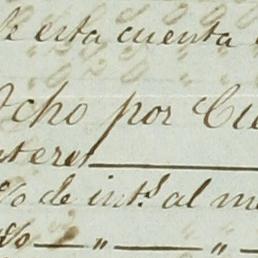 esta cuenta
Ocho por Cie
nteres
% de intS. al m
% — " — " —